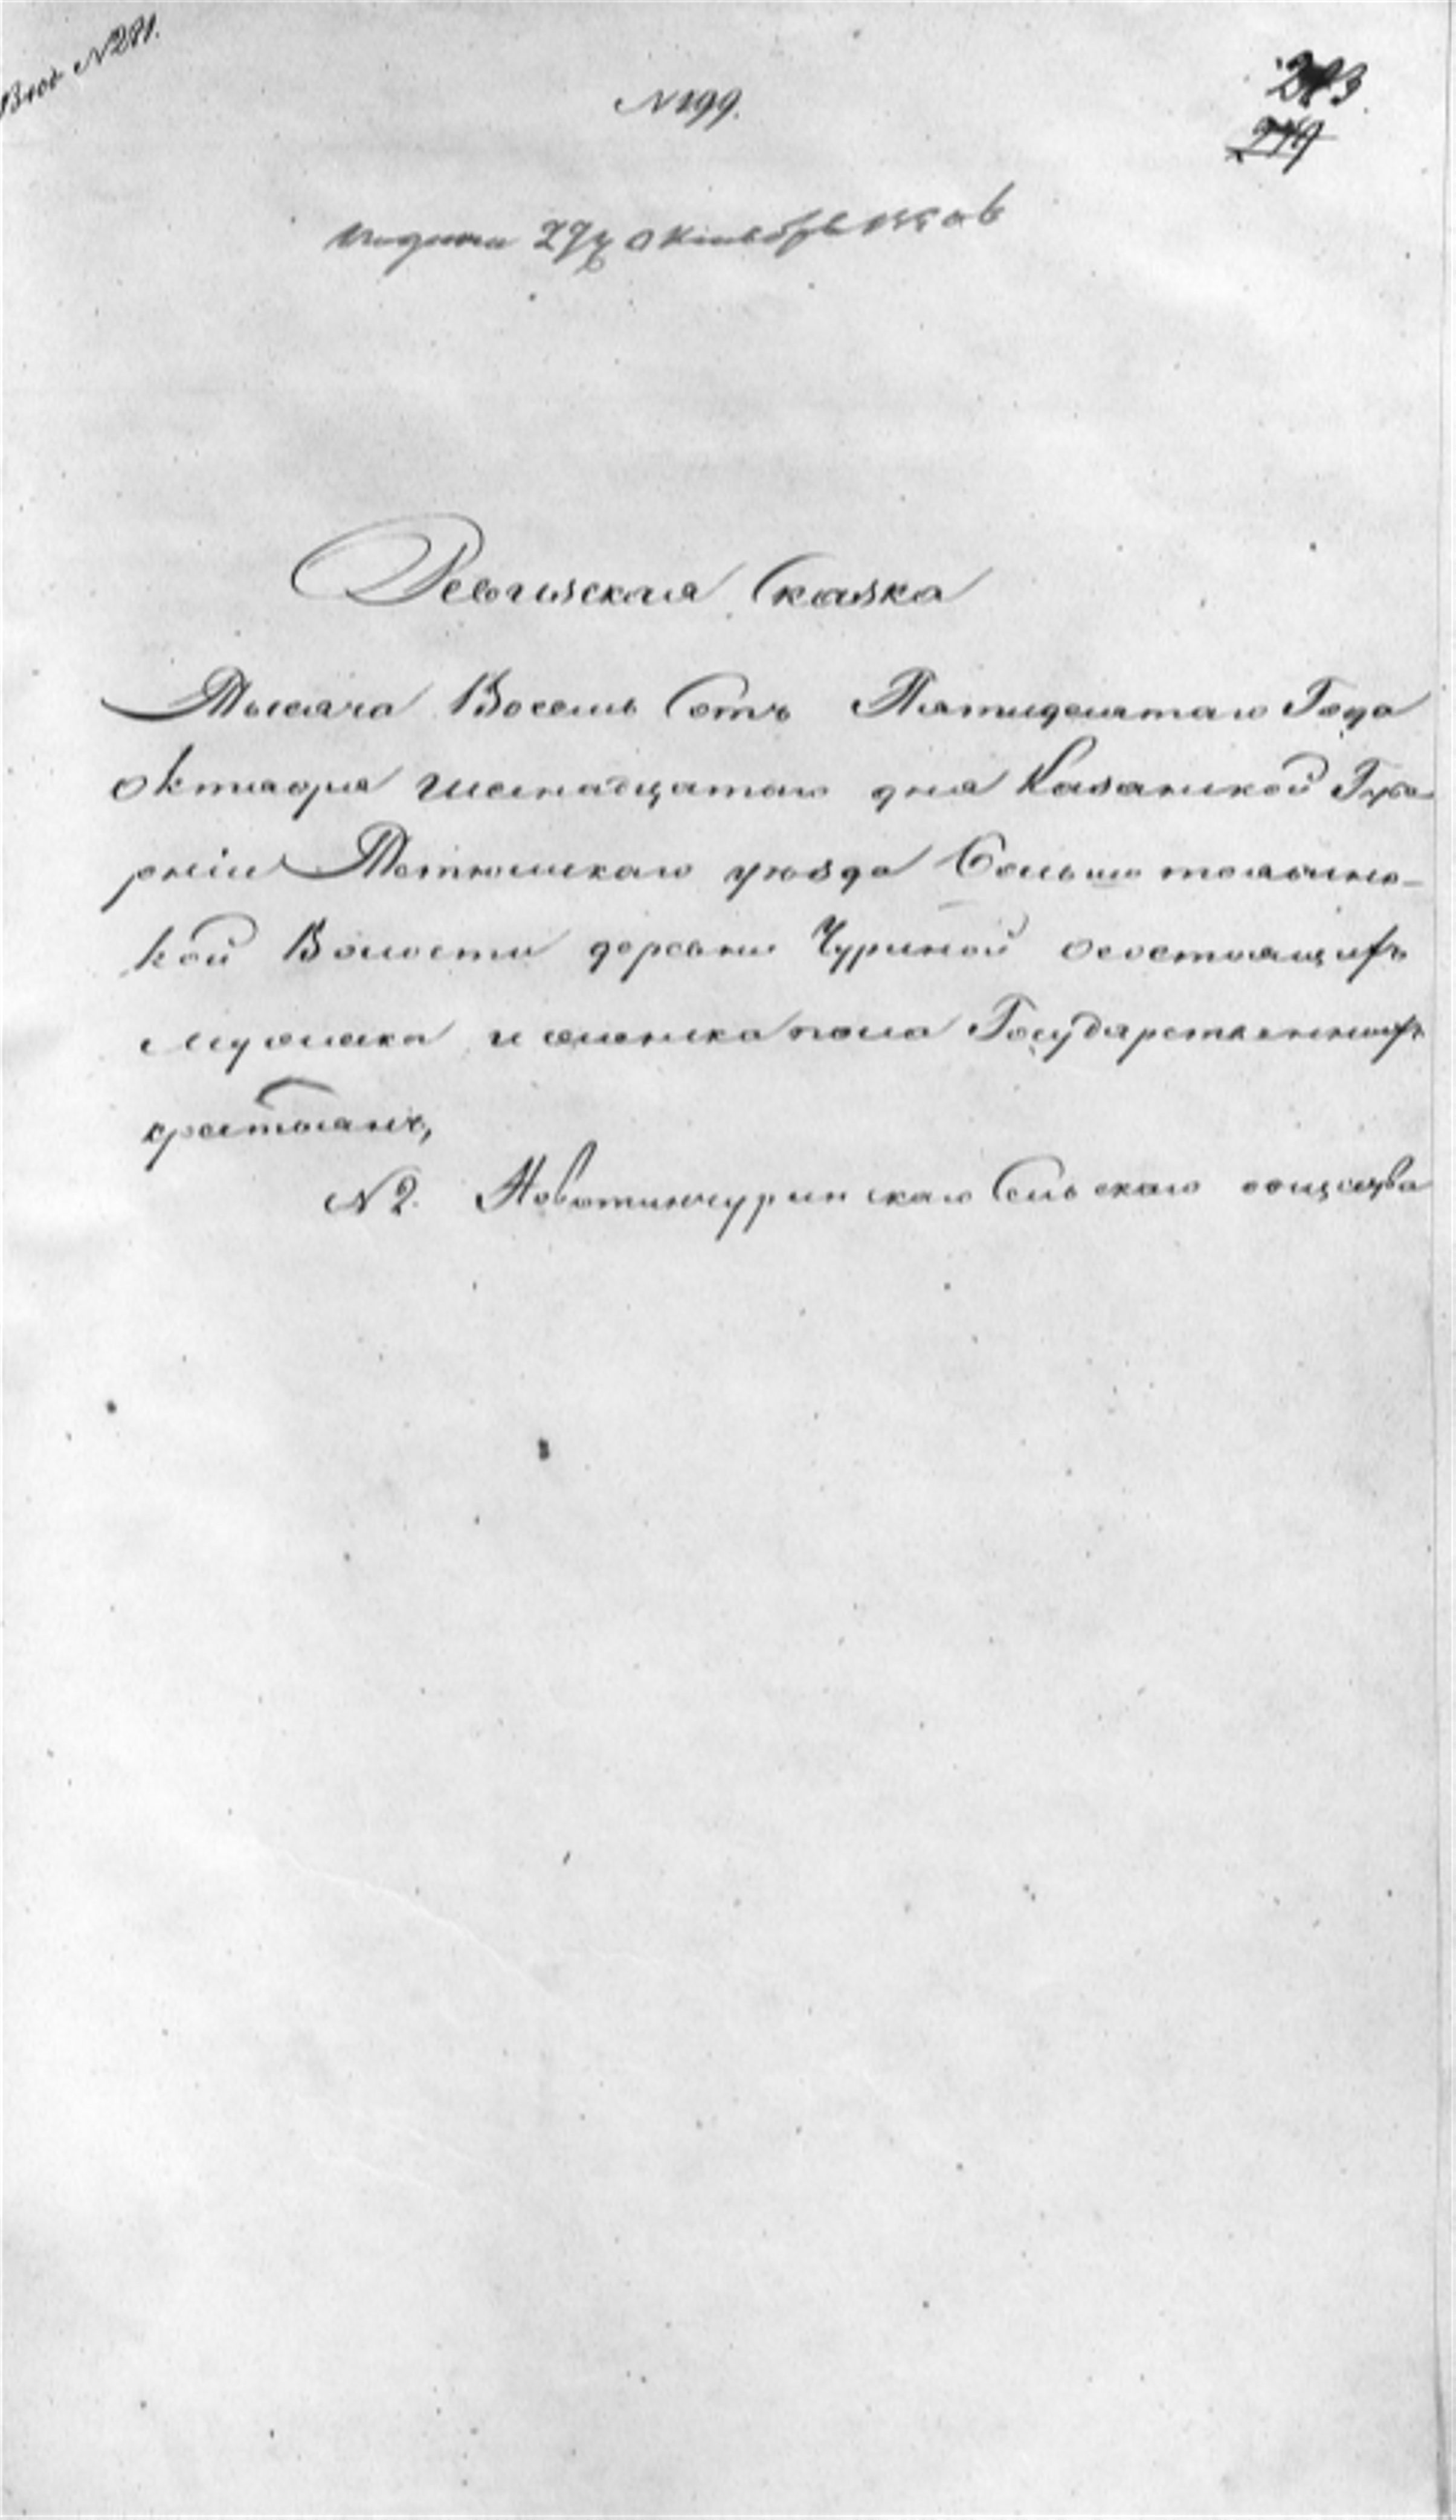 Вход № 281.
№ 199.
283
279
подана 27 октября 1850 г
Ревизская Сказка
Тысяча Восемь Сотъ Пятидесятаго Года
Октября шестнадцатаго дня Казанской Губе
рніи Тетюшскаго уѣзда Больше тоябинс-
кой Волости деревни Чуриной осостоящихъ
мужеска и женска пола Государственныхъ
крестьянъ,
№ 2. Новотинчуринскаго Сельскаго общества